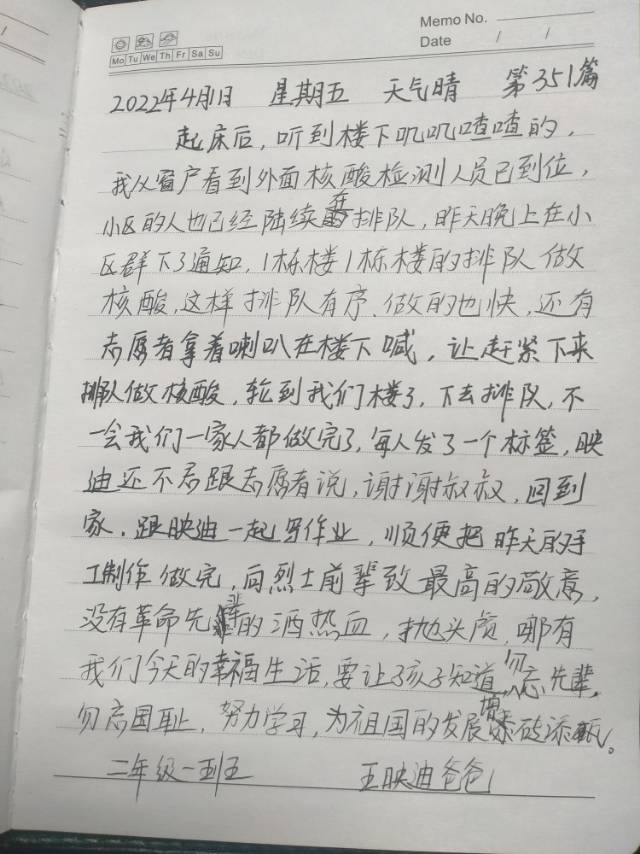 Memo No.
Mo Tu We Th Fr Sa Su
Date / /
2022年4月1日 星期五 天气晴 第351篇
起床后，听到楼下叽叽喳喳的，
我从窗户看到外面核酸检测人员已到位，
小区的人也已经陆续在排队，昨天晚上在小
区群下了通知，1栋楼1栋楼的排队做
核酸，这样排队有序，做的也快，还有
志愿者拿着喇叭在楼下喊，让赶紧下来
排队做核酸，轮到我们楼了，下去排队，不
一会我们一家人都做完了，每人发了一个标签，映
迪还不忘跟志愿者说，谢谢叔叔，回到
家，跟映迪一起写作业，顺便把昨天的手
工制作做完，向烈士前辈致最高的敬意，
没有革命先辈的洒热血，抛头颅，哪有
我们今天的幸福生活，要让孩子知道，勿忘先辈，
勿忘国耻，努力学习，为祖国的发展增砖添瓦。
二年级一班五 王映迪爸爸